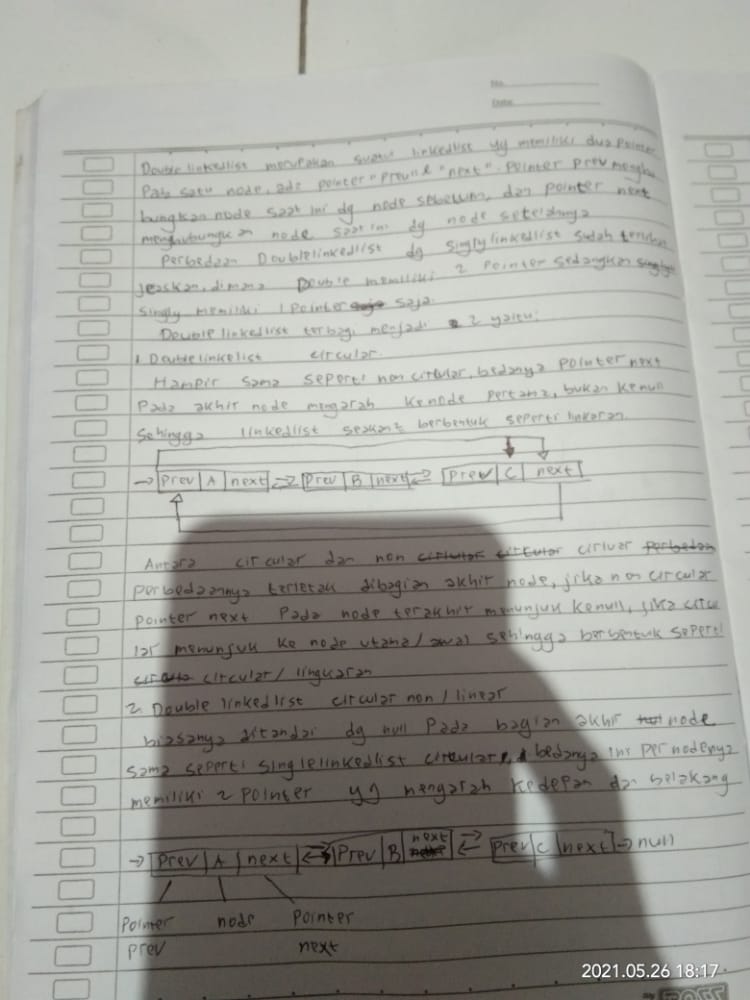 No.
Date
Double linkedlist merupakan suatu linkedlist yg memiliki dua pointer
Pada satu node, ada pointer "prev" & "next". Pointer prev menghu
bungkan node saat ini dg node sebelum, dan pointer next
menghubungkan node saat ini dg node setelahnya
Perbedaan Doublelinkedlist dg singlylinkedlist sudah
jelaskan, dimana Double memiliki 2 pointer sedangkan
singly memiliki 1 pointer saja.
Double linkedlist terbagi menjadi 2 yaitu:
1. Doublelinkelist circular.
Hampir sama seperti non circular, bedanya pointer next
Pada akhir node mengarah kenode pertama, bukan kenull
Sehingga linkedlist seakan berbentuk seperti linkaran.
→ Prev A next ⇄ Prev B next ⇄ Prev C next
Antara circular dan non cirluar
perbedaannya terletak dibagian akhir node, jika non circular
pointer next Pada node terakhir menunjuk kenull, jika circu
lar menunjuk ke node utama/awal sehingga berbentuk seperti
circular/lingkaran
2. Double linkedlist circular non/linear
biasanya ditandai dg null Pada bagian akhir node
sama seperti singlelinkedlist circular, bedanya ini per nodenya
memiliki 2 pointer yg mengarah kedepan dan belakang
→ Prev A next ↔ Prev B next ⇄ Prev C next → null
Pointer node Pointer
prev next
2021.05.26 18:17